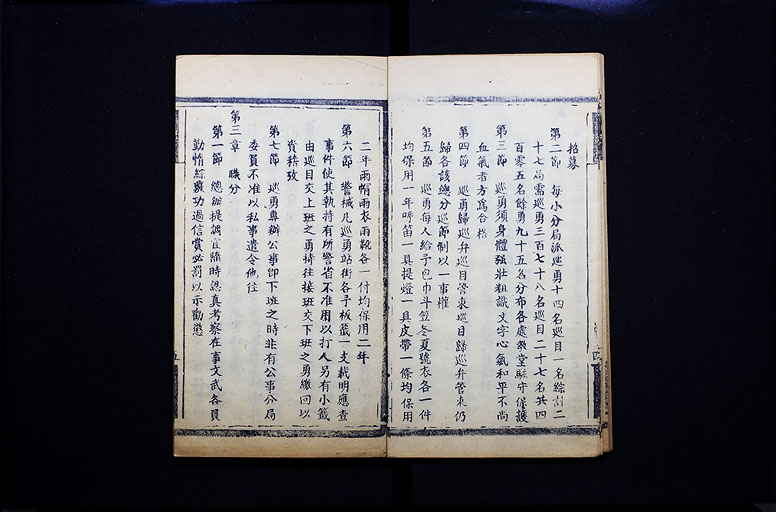 招募
第二節　每小分局派巡勇十四名巡目一名綜計二
十七局需巡勇三百七十八名巡目二十七名共四
百零五名餘勇九十五名分布各處教堂駐守保護
第三節　巡勇須身體強壯粗識文字心氣和平不尚
血氣者方為合格
第四節　巡勇歸巡弁巡目管束巡目歸巡弁管束仍
歸各該總分巡節制以一事權
第五節　巡勇每人給予包巾斗笠冬夏號衣各一件
均保用一年呼笛一具提燈一具皮帶一條均保用
二年雨帽雨衣雨靴各一付均保用二年
第六節　警械凡巡勇站街各予板籤一支載明應查
事件使其執持有所警省不准用以打人另有小籤
由巡目交上班之勇持往接班交下班之勇繳回以
資稽攷
第七節　巡勇專辦公事卽下班之時非有公事分局
委員不准以私事遣令他往
第三章　職分
第一節　總辦提調宜隨時認真考察在事文武各員
勤惰綜覈功過信賞必罰以示勸懲
四
五